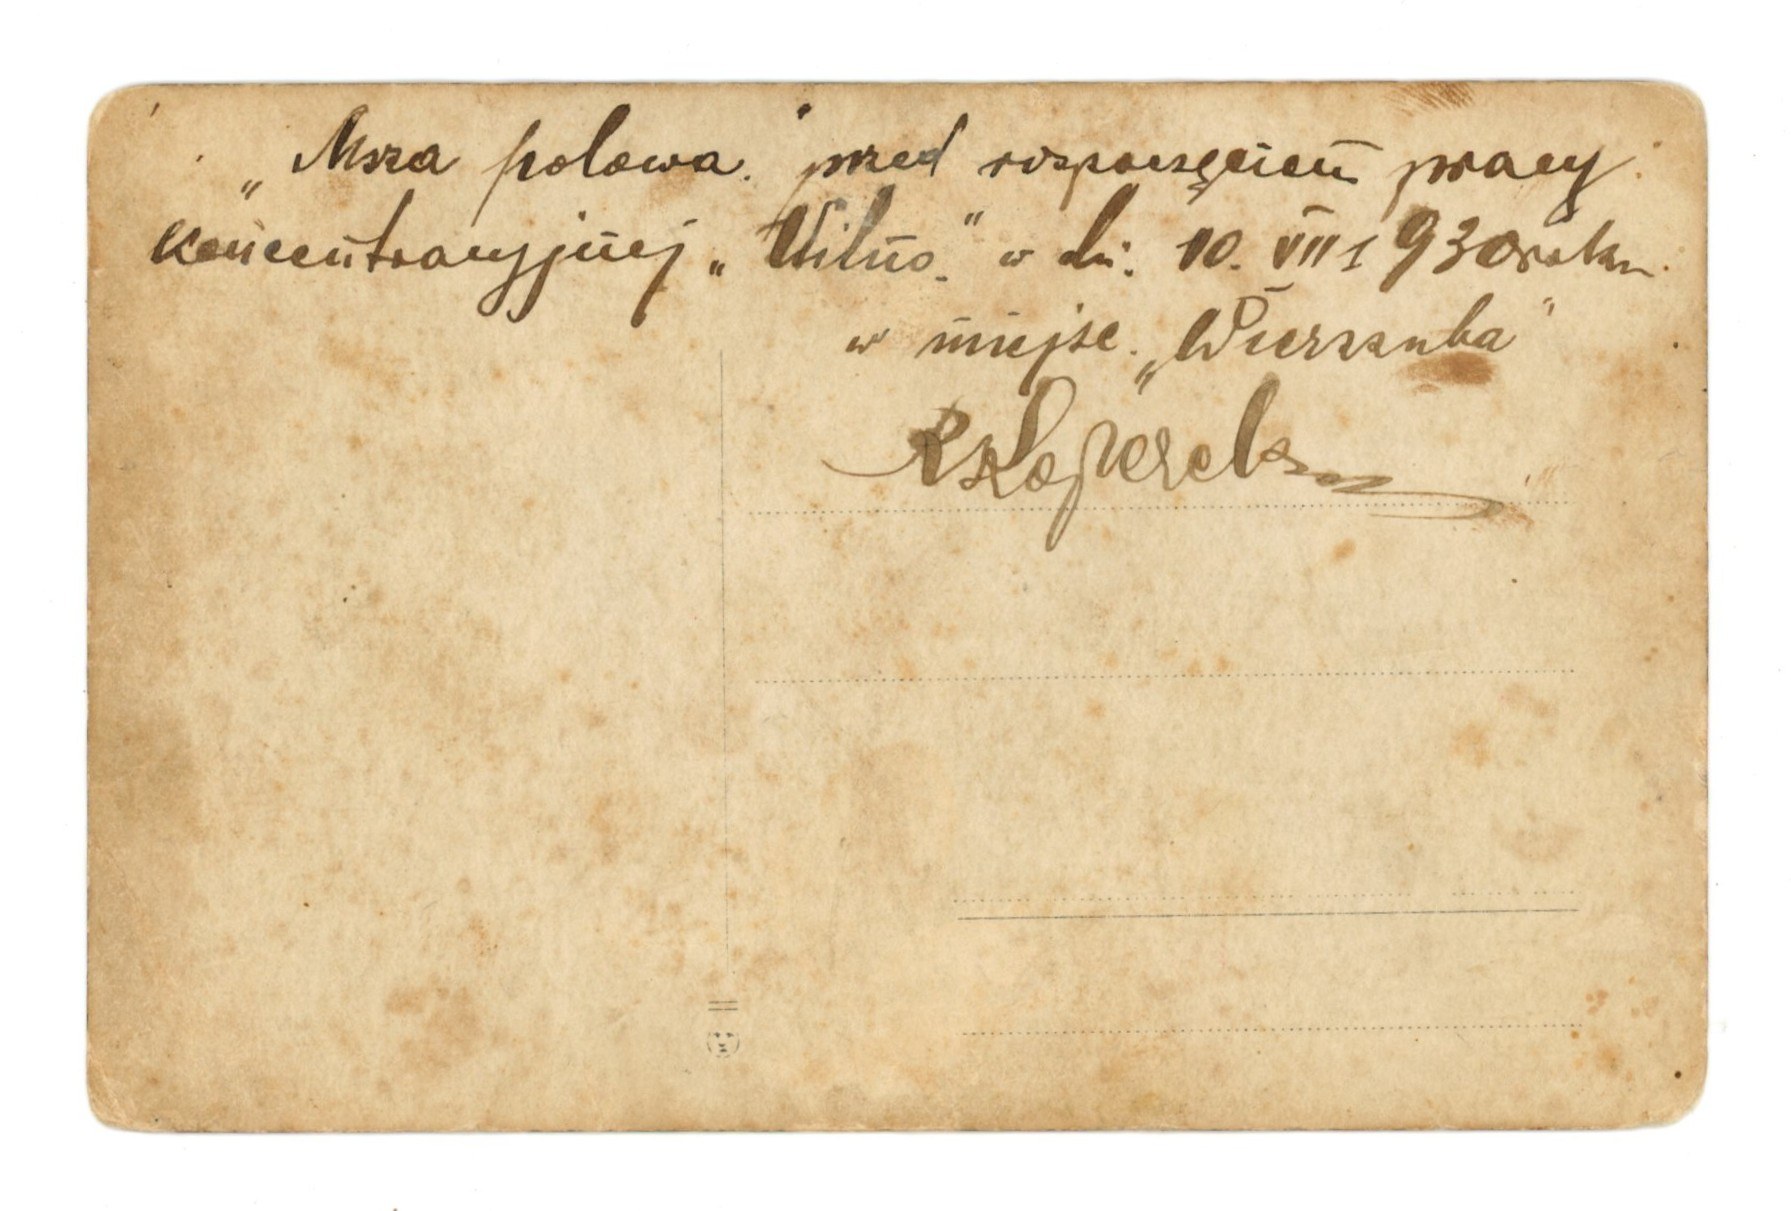 „Msza polowa." przed rozpoczęciem pracy
koncentracyjnej „Wilno." w dn. 10. VII 1930 roku
w miejsc. „Wierszuba"